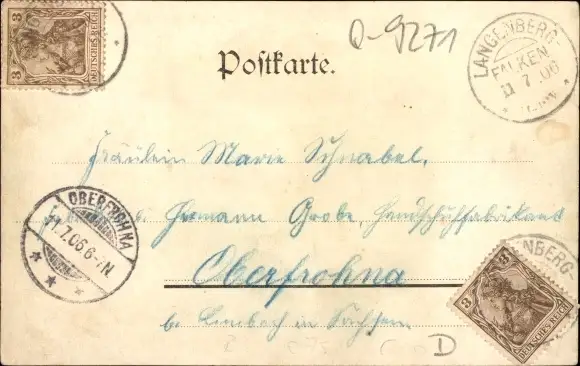 3
DEUTSCHES REICH
Q-9271
LANGENBERG-
FALKEN
11 7 06
Postkarte.
Fräulein Marie Schnabel,
Hermann Grobe, Handschuhfabrikant
OBERFROHNA
11.7.06.6-7N
Oberfrohna
b. Limbach in Sachsen.
NBERG-
3
3
DEUTSCHES REICH
D